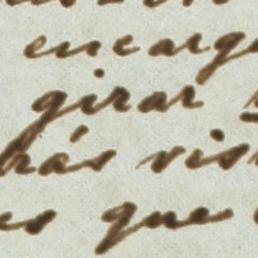 encarg
girar
rás vis
es que